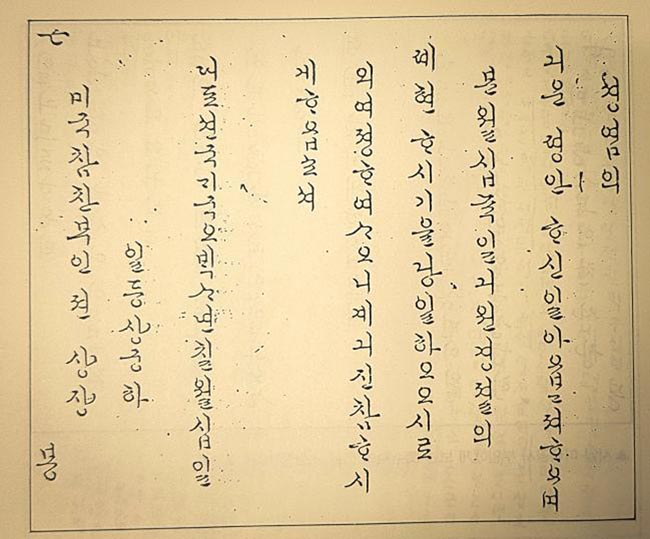 청염의
긔운 평안 ᄒᆞ신일아옵고져ᄒᆞ오며
본월십육일긔원경졀의
폐현 ᄒᆞ시기을 당일하오시로
졍ᄒᆞ여ᄉᆞ오니 계긔진참ᄒᆞ시
게ᄒᆞ옵쇼셔
대됴션국긔국오빅ᄉᆞ년칠월십일
일등상궁하
미국참찬부인젼 상장
봉